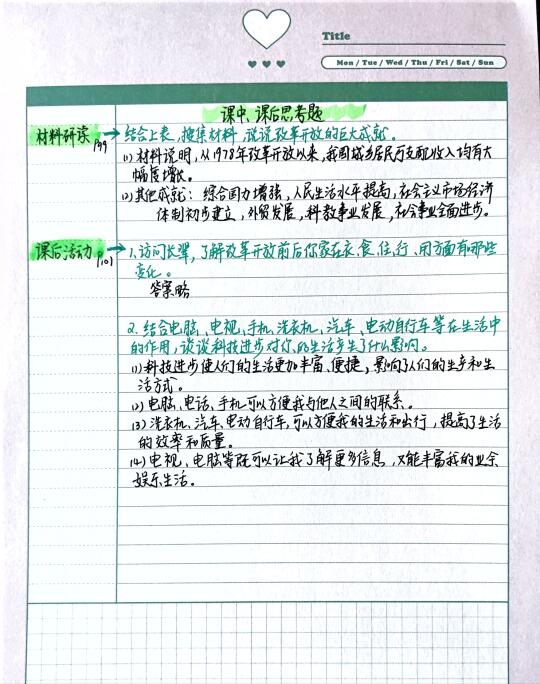 Title
Mon / Tue / Wed / Thu / Fri / Sat / Sun
课中、课后思考题
材料研读 P99 → 结合上表，搜集材料，说说改革开放的巨大成就。
(1) 材料说明，从1978年改革开放以来，我国城乡居民可支配收入均有大
幅度增长。
(2) 其他成就：综合国力增强，人民生活水平提高，社会主义市场经济
体制初步建立，外贸发展，科教事业发展，社会事业全面进步。
课后活动 P101 → 1、访问长辈，了解改革开放前后你家在衣、食、住、行、用方面有哪些
变化。
答案略
2. 结合电脑、电视、手机、洗衣机、汽车、电动自行车等在生活中
的作用，谈谈科技进步对你的生活产生了什么影响。
(1) 科技进步使人们的生活更加丰富、便捷，影响了人们的生产和生
活方式。
(2) 电脑、电话、手机可以方便我与他人之间的联系。
(3) 洗衣机、汽车、电动自行车，可以方便我的生活和出行，提高了生活
的效率和质量。
(4) 电视、电脑等既可以让我了解更多信息，又能丰富我的业余
娱乐生活。